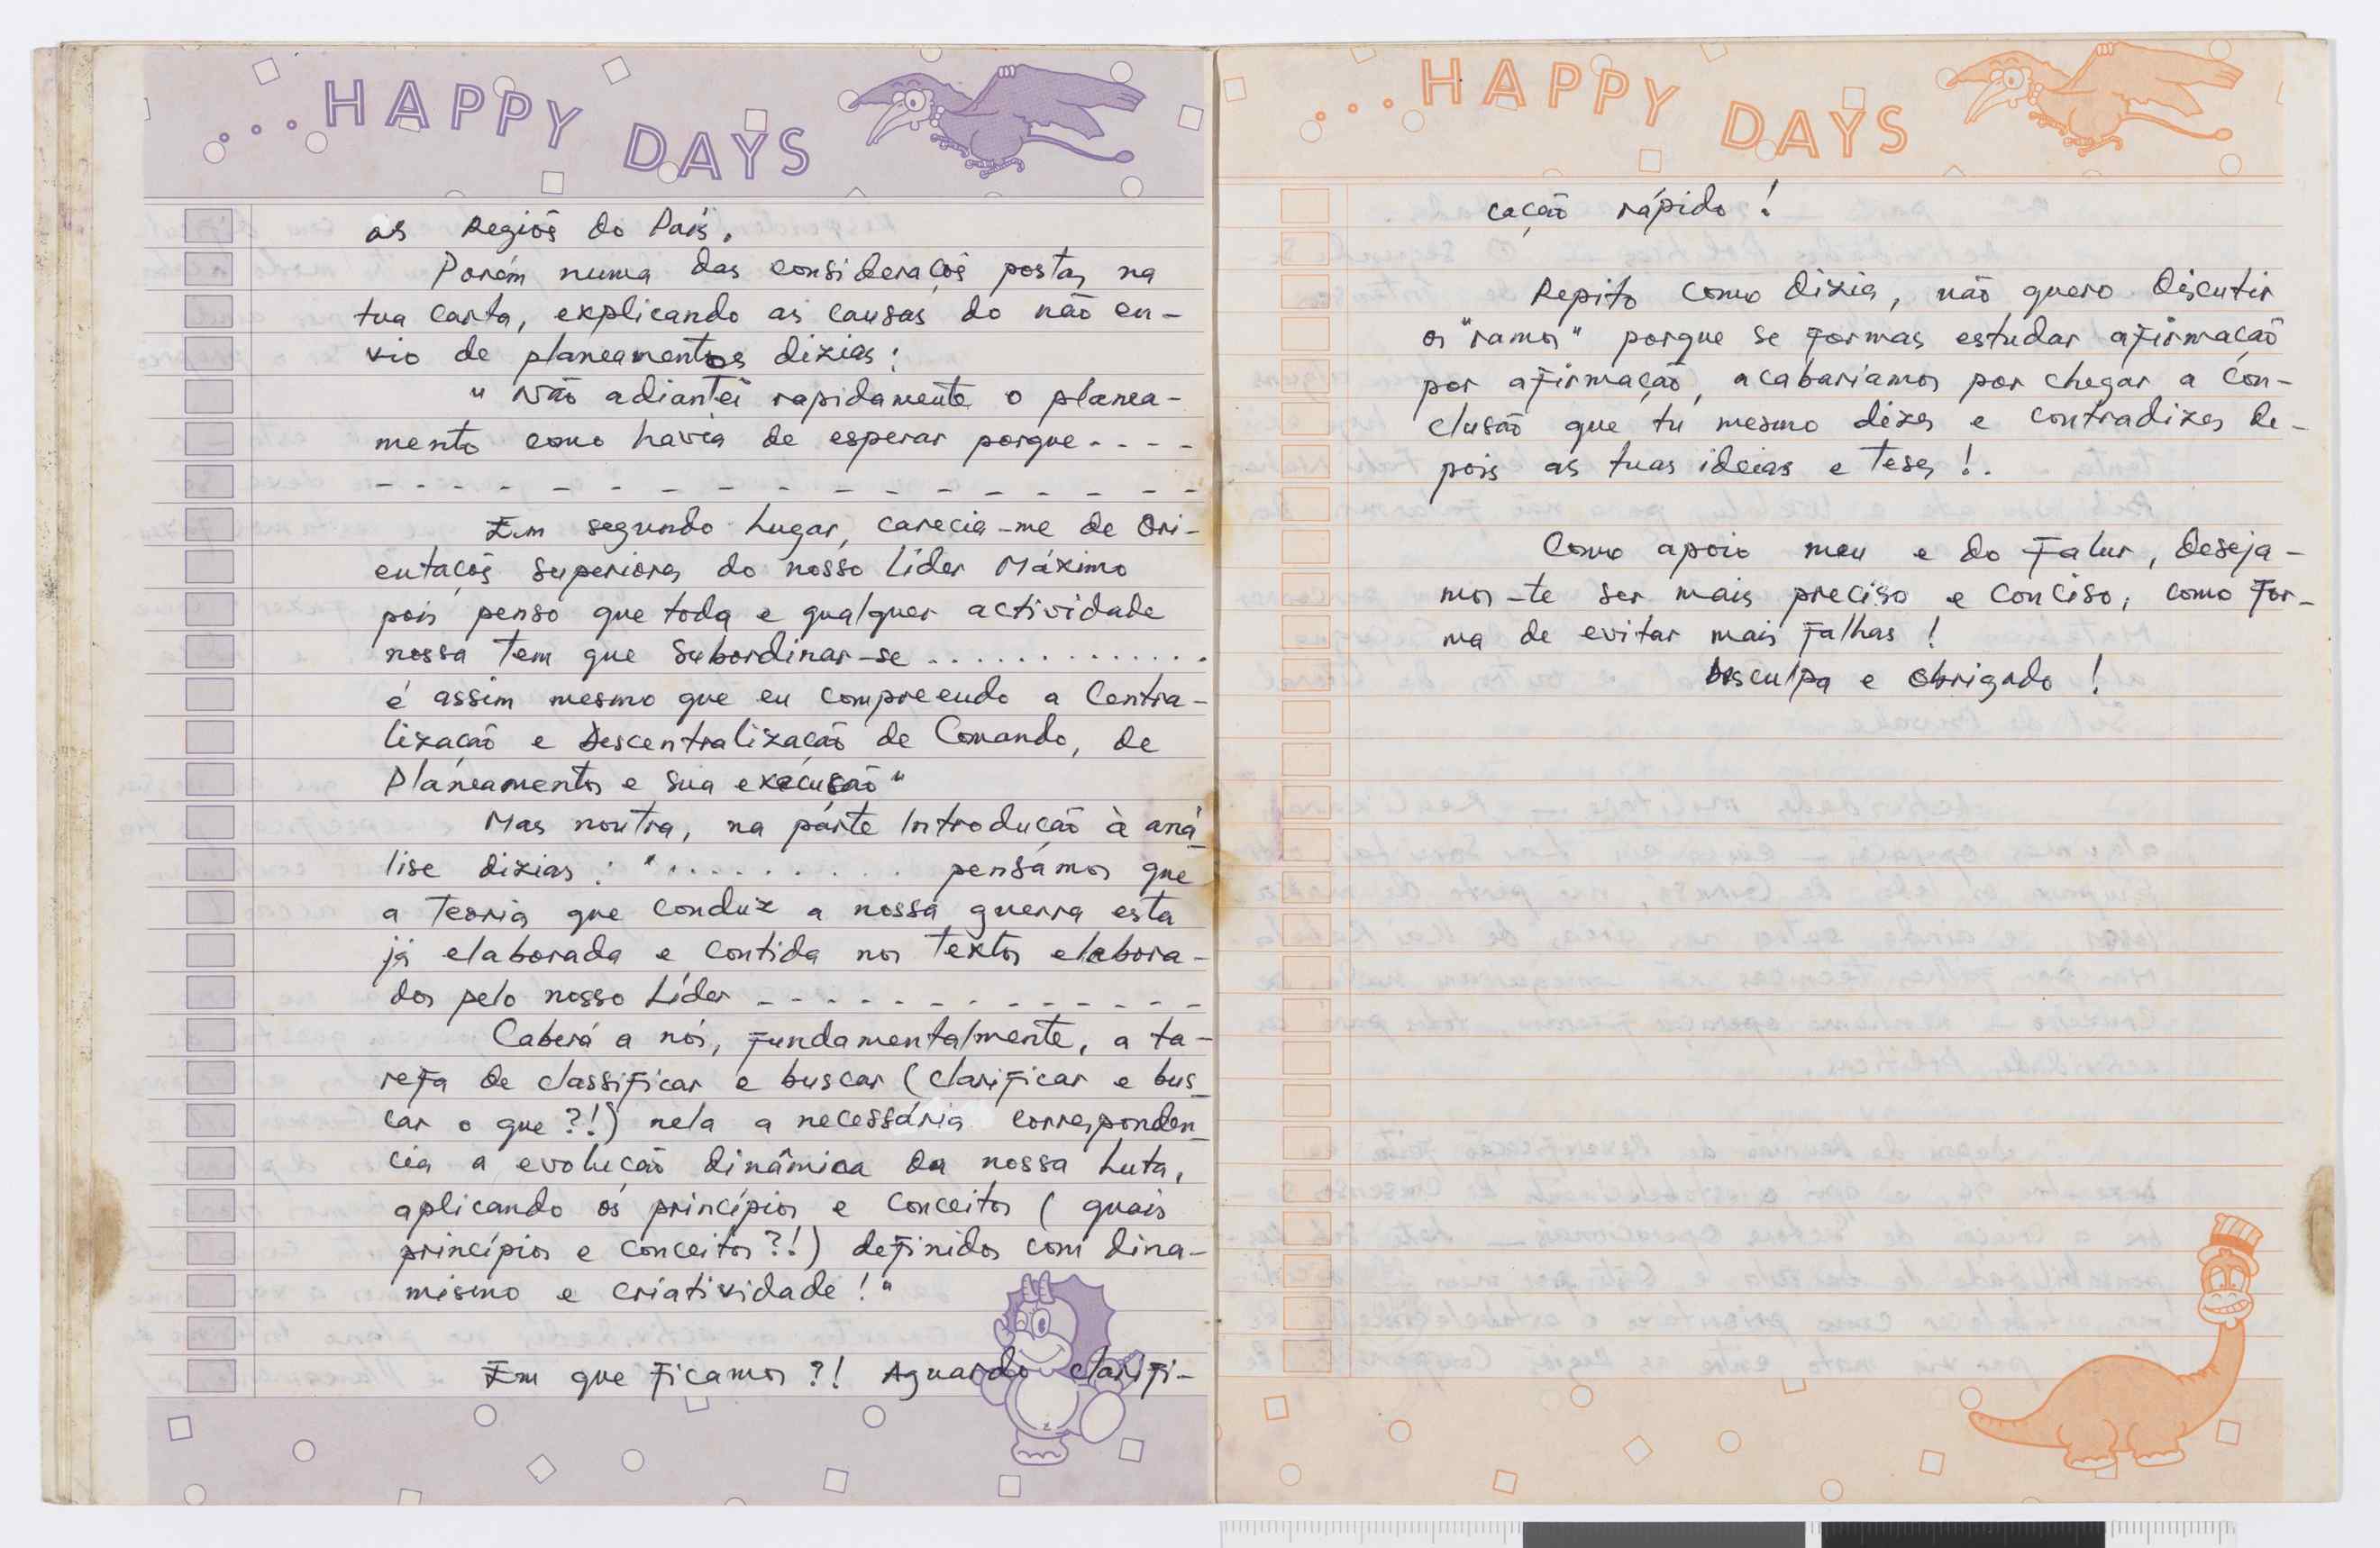 ...HAPPY DAYS
as Regiõs do País.
Porém numa das consideraçõs postas na
tua carta, explicando as causas do não en-
vio de planeamentos dizias:
" Não adiantei rapidamente o planea-
mento como havia de esperar porque - - - -
- - - - - - - - - - - - - - -
Em segundo lugar, carecia-me de Ori-
entaçõs superiores do nosso Líder Máximo
pois penso que toda e qualquer actividade
nossa tem que subordinar-se . . . . . . . . . . . . .
é assim mesmo que eu compreendo a Centra-
lização e Descentralização de Comando, de
Planeamentos e sua execusão"
Mas noutra, na parte Introdução à aná
lise dizias : " . . . . . . . . . pensámos que
a teoria que conduz a nossa guerra esta
já elaborada e contida nos textos elabora-
dos pelo nosso Líder - - - - - - - - - - - - -
Caberá a nós, fundamentalmente, a ta-
refa de classificar e buscar (clarificar e bus_
car o que ?!) nela a necessária corresponden_
cia a evolução dinâmica da nossa luta,
aplicando os princípios e conceitos ( quais
princípios e conceitos ?!) definidos com dina-
mismo e criatividade ! "
Em que ficamos ?! Aguardo clarifi-
...HAPPY DAYS
cação rápido !
Repito como dizia, não quero discutir
os "ramos" porque se formas estudar afirmação
por afirmação, acabariamos por chegar a con-
clusão que tu mesmo dizes e contradizes de-
pois as tuas ideias e teses !.
Como apoio meu e do Falur, deseja-
mos-te ser mais preciso e conciso, como for-
ma de evitar mais falhas !
Disculpa e obrigado !